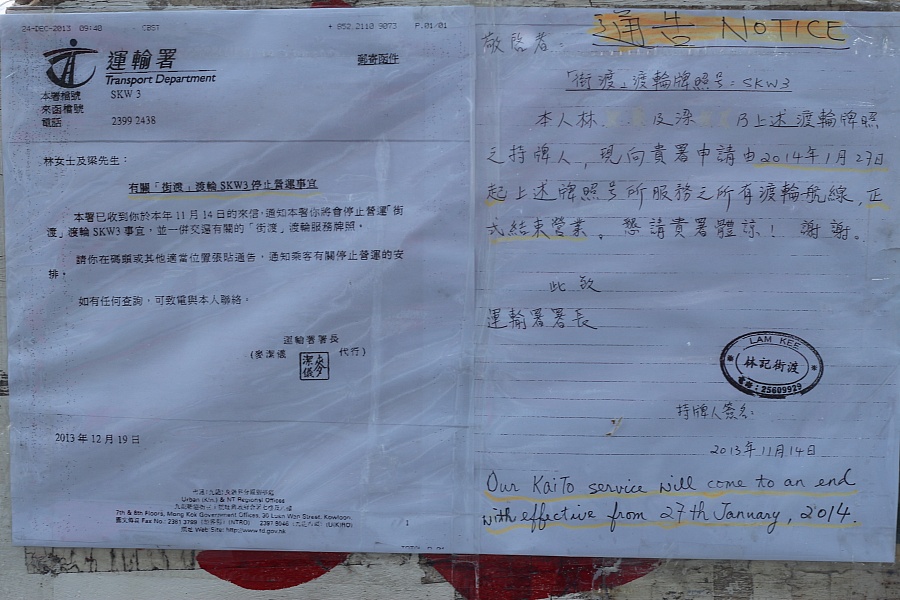 24-DEC-2013 09:40 CBS7 + 852 2110 9073 P.01/01
運輸署
Transport Department
郵寄函件
本署檔號 SKW 3
來函檔號
電話 2399 2438
林女士及梁先生：
有關「街渡」渡輪 SKW3 停止營運事宜
本署已收到你於本年 11 月 14 日的來信，通知本署你將會停止營運「街
渡」渡輪 SKW3 事宜，並一併交還有關的「街渡」渡輪服務牌照。
請你在碼頭或其他適當位置張貼通告，通知乘客有關停止營運的安
排。
如有任何查詢，可致電與本人聯絡。
運輸署署長
(麥潔儀 代行)
麥潔儀
2013 年 12 月 19 日
Urban (Kln) & NT Regional Offices
7th & 8th Floors, Mong Kok Government Offices, 30 Luen Wan Street, Kowloon.
圖文傳真 Fax No.: 2381 3799 (NTRO) 2397 8046 (UKRO)
網址 Web Site: http://www.td.gov.hk
1
通告 NOTICE
敬啟者：
「街渡」渡輪牌照号：SKW3
本人林 及梁 乃上述渡輪牌照
之持牌人，現向貴署申請由2014年1月27日
起上述牌照号所服務之所有渡輪航線，正
式結束營業。懇請貴署體諒！謝謝。
此致
運輸署署長
LAM KEE
林記街渡
電話：25609929
持牌人簽名：
2013年11月14日
Our KaiTo service will come to an end
with effective from 27th January, 2014.